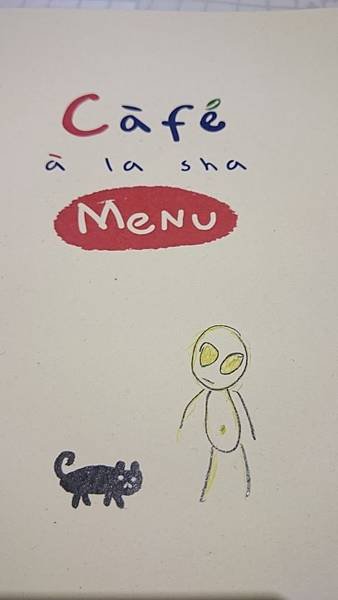 Càfé
à la sha
MeNU